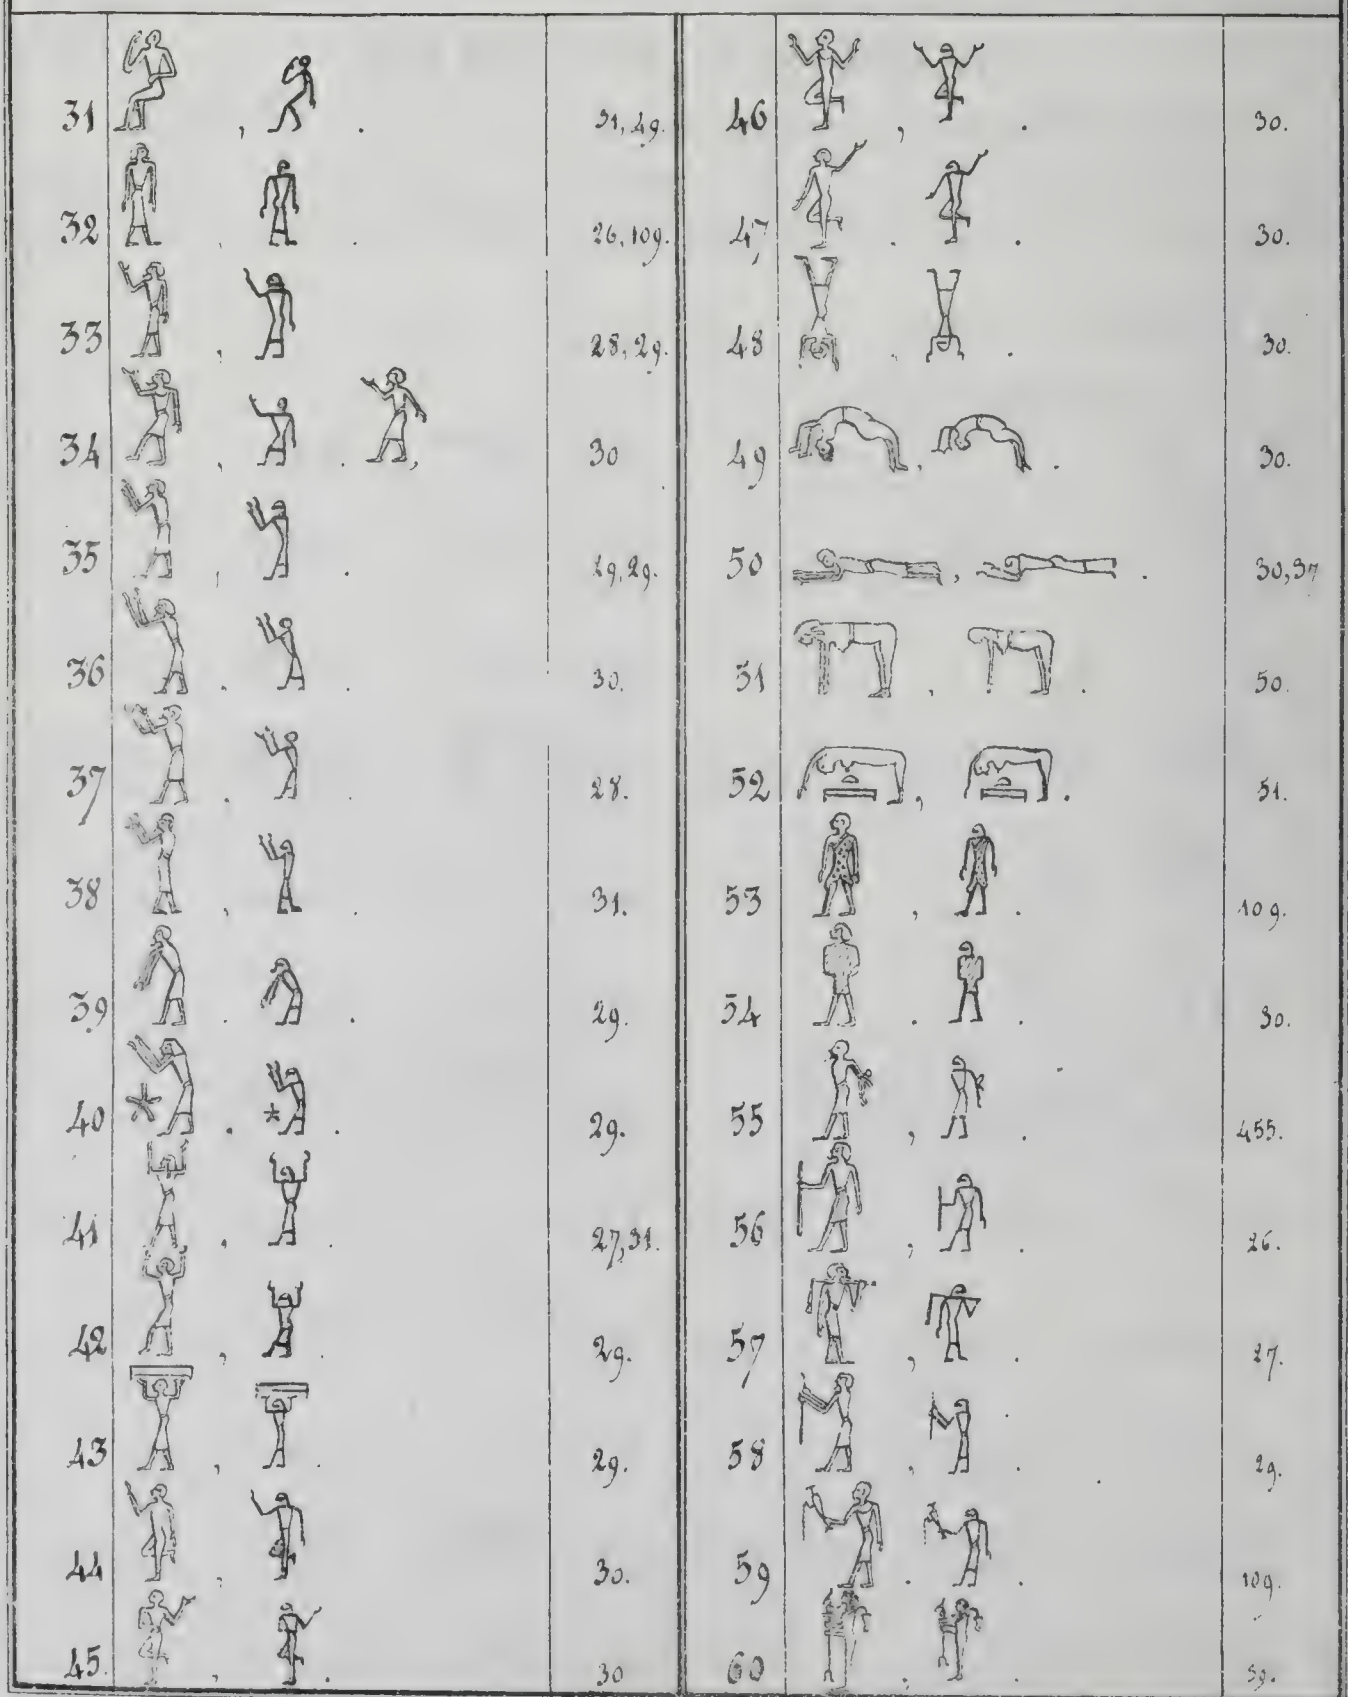 31 , . 31, 29.
32 , . 26, 109.
33 , 28, 29.
34 , . , 30
35 , . 29, 29.
36 . . 30.
37 . . 28.
38 , . 31.
39 . . 29.
40 . . 29.
41 . . 27, 31.
42 , . 29.
43 , . 29.
44 , 30.
45. , . 30
46 , . 30.
47 . . 30.
48 . . 30.
49 , . 30.
50 , . 30, 37
51 , . 50.
52 , . 51.
53 , . 109.
54 . . 30.
55 , . 455.
56 , . 26.
57 , . 27.
58 , . 29.
59 . . 109.
60 . .